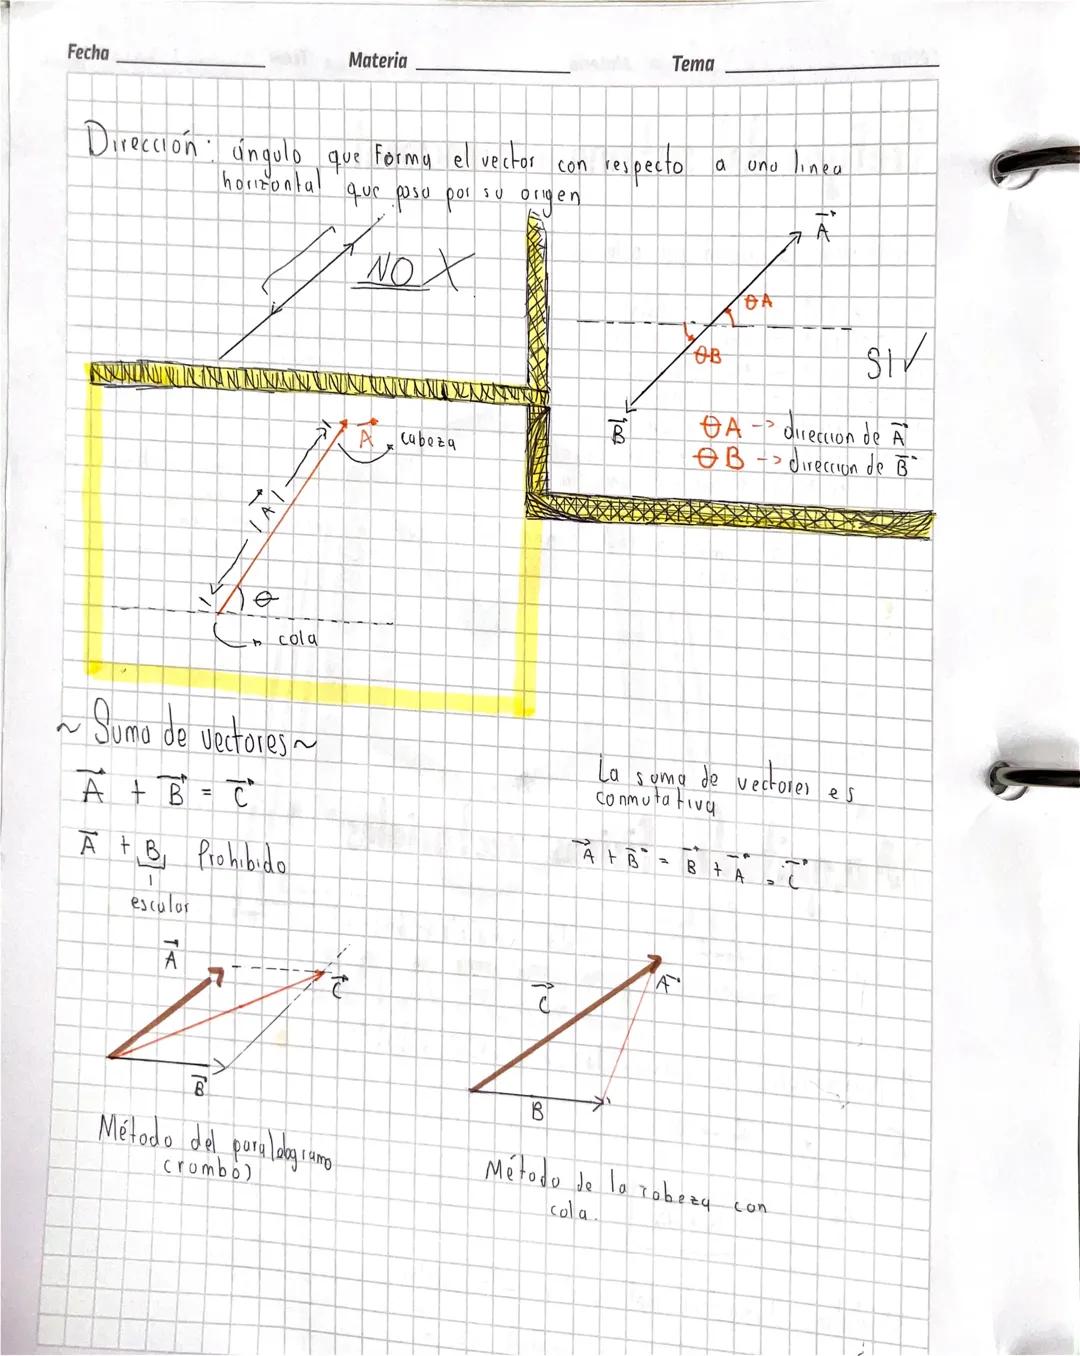 Fecha Materia Tema
Dirección: ángulo que Forma el vector con respecto a una linea
horizontal que pasa por su origen
NO X
A
θA
θB
SI ✓
B
θA -> direccion de A
θB -> direccion de B
A cabeza
|A|
θ
cola
~ Suma de vectores ~
A + B = C
A + B Prohibido
escalar
La suma de vectores es
conmutativa
A + B = B + A = C
A
C
B
Método del paralelogramo
(rombo)
C
A
B
Método de la cabeza con
cola.